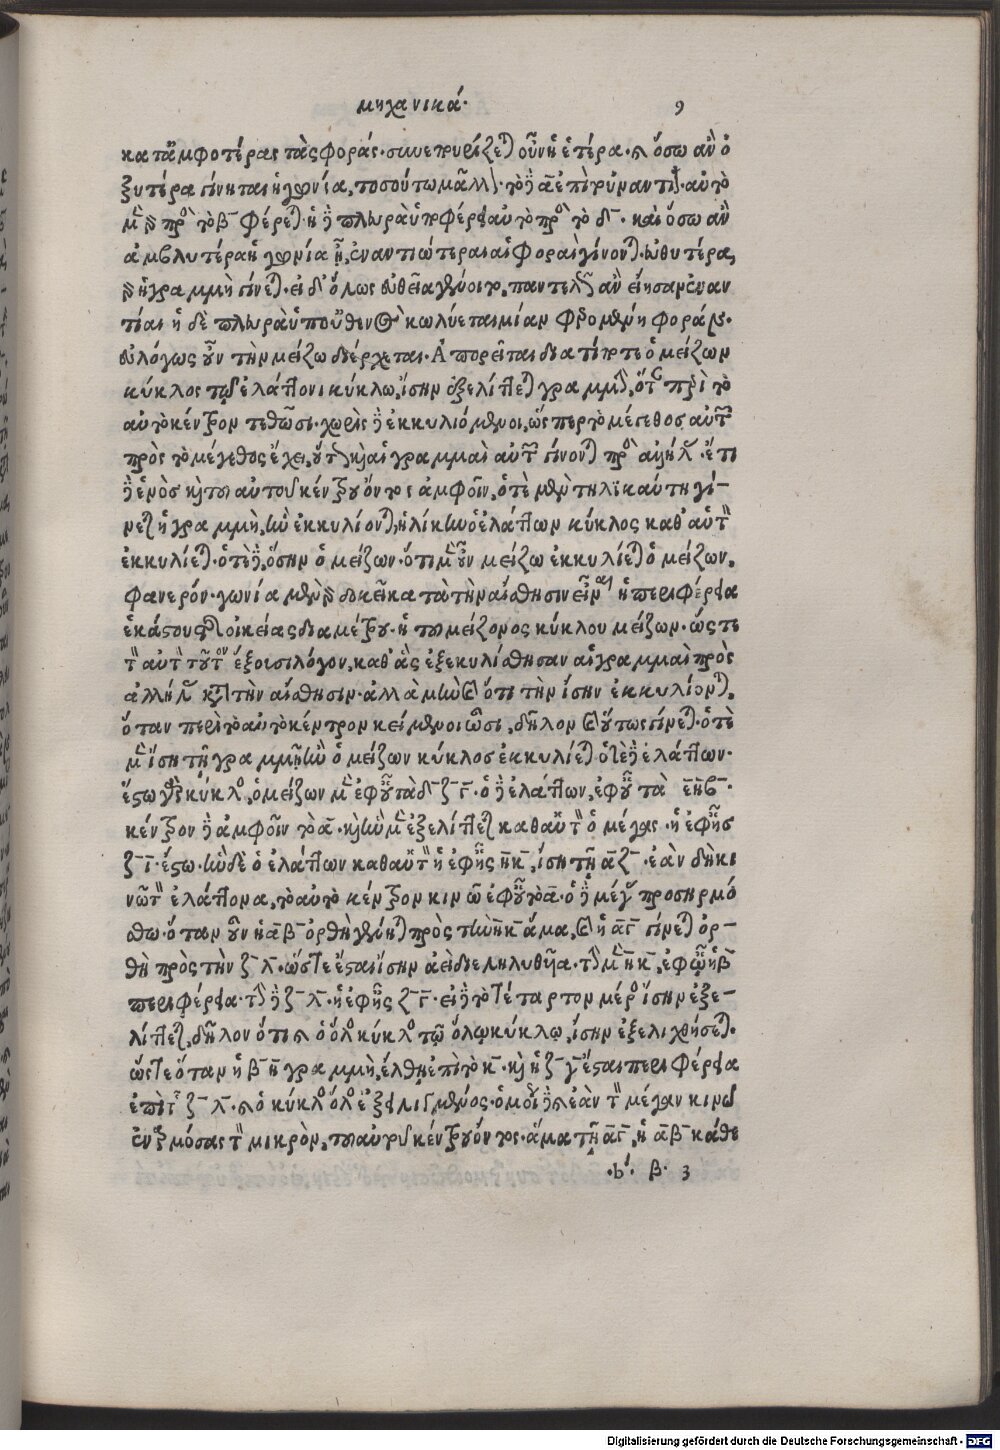 μηχανικά. 9
κατ' ἀμφοτέρας τὰς φοράς. συνεπουρίζεται οὖν ἡ ἑτέρα. καὶ ὅσῳ ἂν ὀ
ξυτέρα γίνηται ἡ γωνία, τοσούτῳ μᾶλλον. τὸ δὲ α̅ ἐπὶ τοὐναντίον. αὐτὸ
μὲν γὰρ πρὸς τὸ β̅ φέρεται. ἡ δὲ πλευρὰ ὑποφέρει αὐτὸ πρὸς τὸ δ̅. καὶ ὅσῳ ἂν
ἀμβλυτέρα ἡ γωνία ᾖ, ἐναντιώτεραι αἱ φοραὶ γίνονται. εὐθυτέρα
γὰρ ἡ γραμμὴ γίνεται. εἰ δ' ὅλως εὐθεῖα γένοιτο, παντελῶς ἂν εἴησαν ἐναν
τίαι ἡ δὲ πλευρὰ ὑπ' οὐθενὸς κωλύεται μίαν φερομένη φοράν.
εὐλόγως οὖν τὴν μείζω διέρχεται. Ἀπορεῖται διὰ τί ποτε ὁ μείζων
κύκλος τῷ ἐλάττονι κύκλῳ, ἴσην ἐξελίττεται γραμμήν, ὅταν περὶ τὸ
αὐτὸ κέντρον τεθῶσι. χωρὶς δὲ ἐκκυλιόμενοι, ὥσπερ τὸ μέγεθος αὐτῶν
πρὸς τὸ μέγεθος ἔχει, οὕτως καὶ αἱ γραμμαὶ αὐτῶν γίνονται πρὸς ἀλλήλας. ἔτι
δὲ ἑνὸς καὶ τοῦ αὐτοῦ κέντρου ὄντος ἀμφοῖν, ὁτὲ μὲν τηλικαύτη γί-
νεται ἡ γραμμὴ, ἣν ἐκκυλίονται, ἡλίκην ὁ ἐλάττων κύκλος καθ' αὑτὸν
ἐκκυλίεται. ὁτὲ δὲ, ὅσην ὁ μείζων. ὅτι μὲν οὖν μείζω ἐκκυλίεται ὁ μείζων,
φανερόν. γωνία μὲν γὰρ δοκεῖ κατὰ τὴν αἴσθησιν εἶναι ἡ περιφέρεια
ἑκάστου τῆς οἰκείας διαμέτρου. ἡ τοῦ μείζονος κύκλου μείζων. ὥστε
τὸν αὐτὸν τοῦτον ἕξουσι λόγον, καθ' ἃς ἐξεκυλίσθησαν αἱ γραμμαὶ πρὸς
ἀλλήλας κατὰ τὴν αἴσθησιν. ἀλλὰ μὴν καὶ ὅτι τὴν ἴσην ἐκκυλίονται,
ὅταν περὶ τὸ αὐτὸ κέντρον κείμενοι ὦσι, δῆλον καὶ οὕτως γίνεται. ὁτὲ
μὲν ἴση τῇ γραμμῇ ἣν ὁ μείζων κύκλος ἐκκυλίεται ὁτὲ δὲ ἐλάττων.
ἔστω γὰρ κύκλος, ὁ μείζων μὲν ἐφ' οὗ τὰ δ̅ ζ̅ γ̅. ὁ δὲ ἐλάττων, ἐφ' οὗ τὰ ε̅ η̅ β̅.
κέντρον δὲ ἀμφοῖν τὸ α̅. καὶ ἣν μὲν ἐξελίττεται καθ' αὑτὸν ὁ μέγας. ἡ ἐφ' ἧς
ζ̅ ι̅. ἔστω. ἣν δὲ ὁ ἐλάττων καθ' αὑτὸν ἡ ἐφ' ἧς η̅ κ̅, ἴση τῇ α̅ ζ̅. ἐὰν δὴ κι
νῶ τὸν ἐλάττονα, τὸ αὐτὸ κέντρον κινῶ ἐφ' οὗ τὸ α̅. ὁ δὲ μέγας προσηρμό
σθω. ὅταν οὖν ἡ α̅ β̅ ὀρθὴ γένηται πρὸς τὴν η̅ κ̅ ἅμα, καὶ ἡ α̅ γ̅ γίνεται ὀρ-
θὴ πρὸς τὴν ζ̅ λ̅. ὥστε ἔσται ἴσην ἀεὶ διεληλυθυῖα. τὴν μὲν η̅ κ̅, ἐφ' ᾧ ἡ β̅
περιφέρεια. τὴν δὲ ζ̅ λ̅. ἡ ἐφ' ἧς ζ̅ γ̅. εἰ δὲ τὸ τέταρτον μέρος ἴσην ἐξε-
λίττεται, δῆλον ὅτι καὶ ὁ ὅλος κύκλος τῷ ὅλῳ κύκλῳ, ἴσην ἐξελιχθήσεται.
ὥστε ὅταν ἡ β̅ η̅ γραμμὴ, ἔλθῃ ἐπὶ τὸ κ̅. καὶ ἡ ζ̅ γ̅ ἔσται περιφέρεια
ἐπὶ τῆς ζ̅ λ̅. καὶ ὁ κύκλος ὅλος ἐξειλιγμένος. ὁμοίως δὲ καὶ ἐὰν τὸν μέγαν κινῶ
ἐναρμόσας τὸν μικρὸν, τοῦ αὐτοῦ κέντρου ὄντος. ἅμα τῇ α̅ γ̅, ἡ α̅ β̅ κάθε
.b'. β. 3
Digitalisierung gefördert durch die Deutsche Forschungsgemeinschaft - DFG